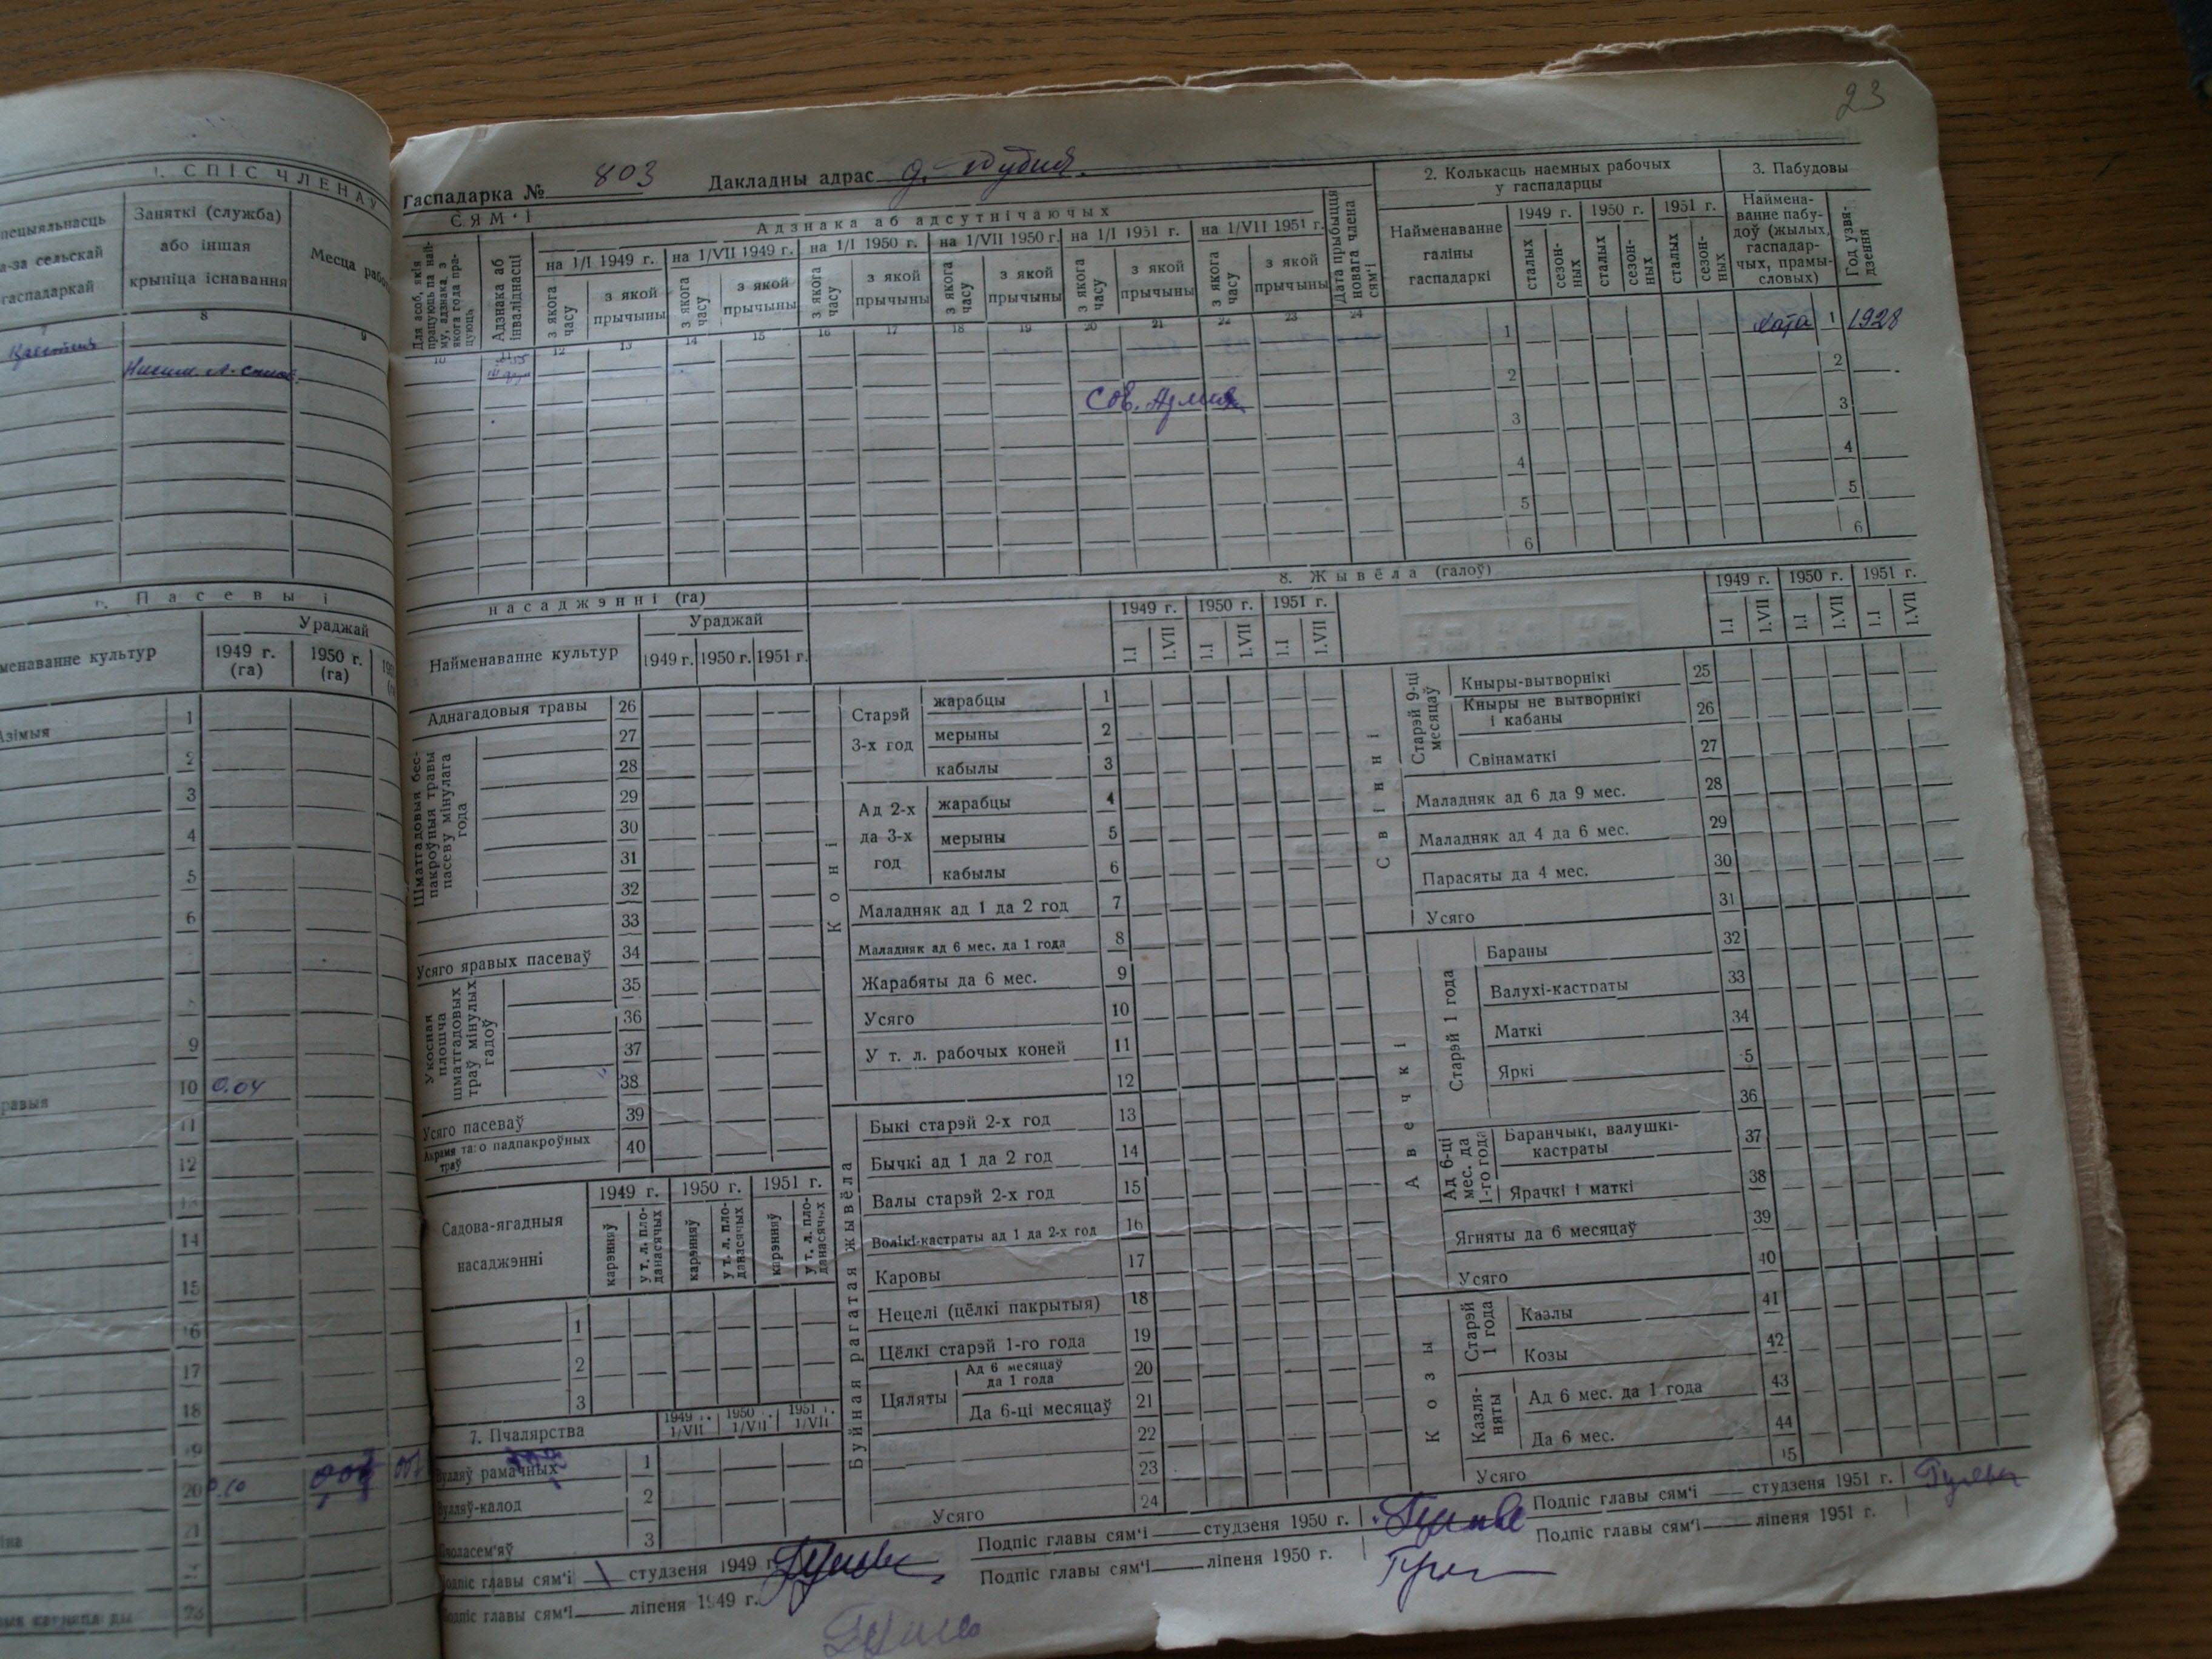 23
1. СПІС ЧЛЕНАЎ
Заняткі (служба)
або іншая
крыніца існавання
Месца
за сельскай
гаспадаркай
7 8 9
Пасевы і
Ураджай
культур
1949 г. (га)
1950 г. (га)
Азімыя
1
2
3
4
5
6
9
10 0.04
11
12
14
15
16
17
18
19
20 0.10
21
23
Гаспадарка № 803 Дакладны адрас д.
СЯМ'І
Адзнака аб адсутнічаючых
Для асоб, якія працуюць па найму, адзнака, з якога года працуюць
Адзнака аб інваліднасці
на 1/I 1949 г.
на 1/VII 1949 г.
на 1/I 1950 г.
на 1/VII 1950 г.
на 1/I 1951 г.
на 1/VII 1951 г.
з якога часу
з якой прычыны
з якога часу
з якой прычыны
з якога часу
з якой прычыны
з якога часу
з якой прычыны
з якога часу
з якой прычыны
з якога часу
з якой прычыны
Дата прыбыцця новага члена сям'і
10 11 12 13 14 15 16 17 18 19 20 21 22 23 24
Сов. Армия
2. Колькасць наемных рабочых
у гаспадарцы
Найменаванне
галіны
гаспадаркі
1949 г. 1950 г. 1951 г.
сталых сезонных сталых сезонных сталых сезонных
1
2
3
4
5
6
3. Пабудовы
Наймена-
ванне пабу-
доў (жылых,
гаспадар-
чых, прамы-
словых)
Год узвя-
дзення
хата 1 1928
2
3
4
5
6
насаджэнні (га)
Найменаванне культур
Ураджай
1949 г. 1950 г. 1951 г.
Аднагадовыя травы 26
Шматгадовыя бес-
пакроўныя травы
пасеву мінулага
года
27
28
29
30
31
32
33
Усяго яравых пасеваў 34
Укосная
плошча
шматгадовых
траў мінулых
гадоў
35
36
37
38
Усяго пасеваў 39
Акрамя таго падпакроўных
траў 40
Садова-ягадныя
насаджэнні
1949 г. 1950 г. 1951 г.
карэнняў
у т. л. пло-
данасячых
карэнняў
у т. л. пло-
данасячых
карэнняў
у т. л. пло-
данасячых
1
2
3
7. Пчалярства
1949 г. 1/VII
1950 г. 1/VII
1951 г. 1/VII
Вулляў рамачных 1
Вулляў-калод 2
Пчоласем'яў 3
8. Жывёла (галоў)
1949 г. 1950 г. 1951 г.
1.I 1.VII 1.I 1.VII 1.I 1.VII
Коні
Старэй
3-х год
жарабцы 1
мерыны 2
кабылы 3
Ад 2-х
да 3-х
год
жарабцы 4
мерыны 5
кабылы 6
Маладняк ад 1 да 2 год 7
Маладняк ад 6 мес. да 1 года 8
Жарабяты да 6 мес. 9
Усяго 10
У т. л. рабочых коней 11
12
Буйная рагатая жывёла
Быкі старэй 2-х год 13
Бычкі ад 1 да 2 год 14
Валы старэй 2-х год 15
Волікі-кастраты ад 1 да 2-х год 16
Каровы 17
Нецелі (цёлкі пакрытыя) 18
Цёлкі старэй 1-го года 19
Цяляты
Ад 6 месяцаў
да 1 года 20
Да 6-ці месяцаў 21
22
23
Усяго 24
1949 г. 1950 г. 1951 г.
1.I 1.VII 1.I 1.VII 1.I 1.VII
Свінні
Старэй 9-ці
месяцаў
Кныры-вытворнікі 25
Кныры не вытворнікі
і кабаны 26
Свінаматкі 27
Маладняк ад 6 да 9 мес. 28
Маладняк ад 4 да 6 мес. 29
Парасяты да 4 мес. 30
Усяго 31
Авечкі
Старэй 1 года
Бараны 32
Валухі-кастраты 33
Маткі 34
Яркі 35
36
Ад 6-ці
мес. да
1-го года
Баранчыкі, валушкі-
кастраты 37
Ярачкі і маткі 38
Ягняты да 6 месяцаў 39
Усяго 40
Козы
Старэй
1 года
Казлы 41
Козы 42
Казля-
няты
Ад 6 мес. да 1 года 43
Да 6 мес. 44
Усяго 45
Подпіс главы сям'і студзеня 1949 г.
Подпіс главы сям'і ліпеня 1949 г.
Подпіс главы сям'і студзеня 1950 г.
Подпіс главы сям'і ліпеня 1950 г.
Подпіс главы сям'і студзеня 1951 г.
Подпіс главы сям'і ліпеня 1951 г.